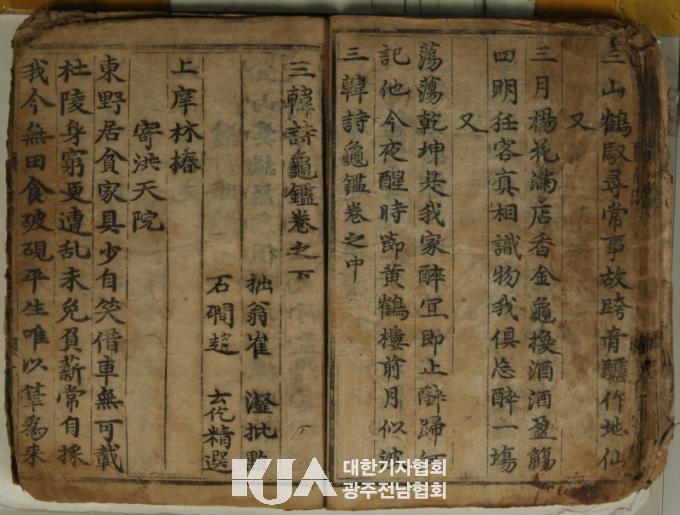 三山鶴馭尋常事故跨青驢作地仙
又
三月楊花滿店香金龜換酒酒盈觴
四明狂客真相識物我俱忘醉一場
又
蕩蕩乾坤是我家醉宜即止醉歸
記他今夜醒時節黃鶴樓前月似波
三韓詩龜鑑卷之中
三韓詩龜鑑卷之下
拙翁崔瀣批點
石磵趙云仡精選
上庠林椿
寄洪天院
東野居貧家具少自笑借車無可載
杜陵身窮更遭乱未免負薪常自採
我今無田食破硯平生唯以筆爲耒
KJA 대한기자협회
광주전남협회